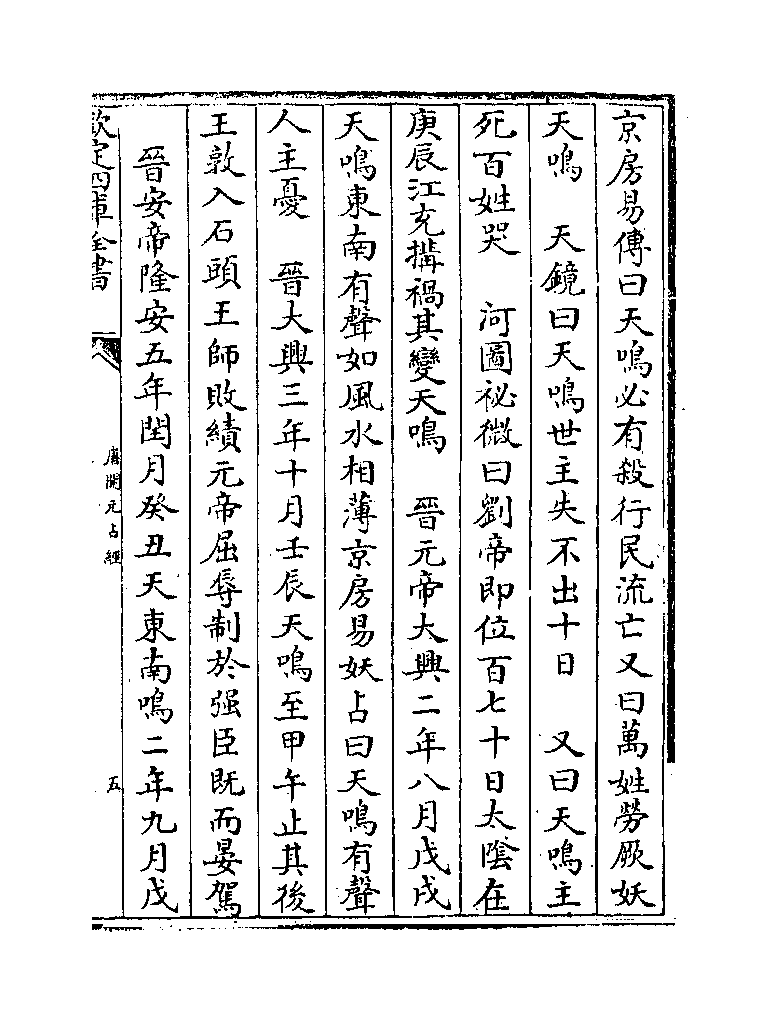 京房易傳曰天鳴必有殺行民流亡又曰萬姓勞厥妖
天鳴　天鏡曰天鳴世主失不出十日　又曰天鳴主
死百姓哭　河圖祕微曰劉帝即位百七十日太陰在
庚辰江充搆禍其變天鳴　晉元帝大興二年八月戊戌
天鳴東南有聲如風水相薄京房易妖占曰天鳴有聲
人主憂　晉大興三年十月壬辰天鳴至甲午止其後
王敦入石頭王師敗績元帝屈辱制於强臣既而晏駕
晉安帝隆安五年閏月癸丑天東南鳴二年九月戊
欽定四庫全書
唐開元占經
五